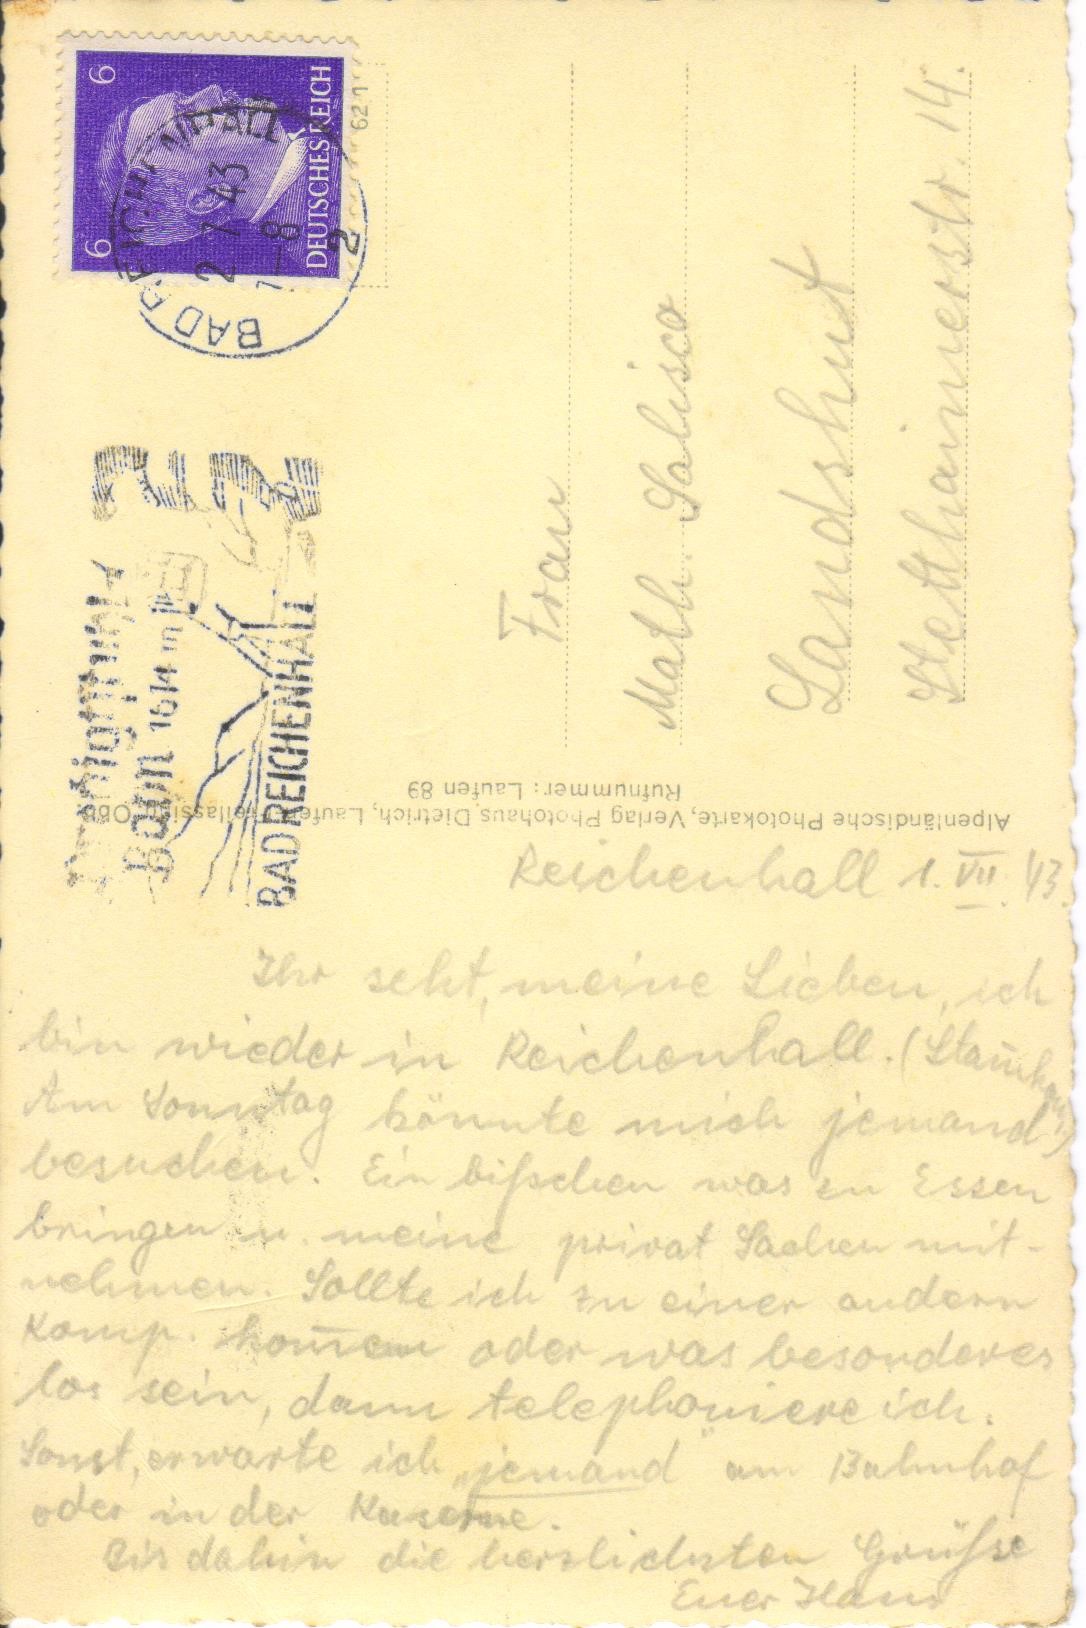 6 6
DEUTSCHES REICH
BAD REICHENHALL
2 7 43
7-8
2
621
Bahn 1614 m
BAD REICHENHALL
Frau
Math. Salisco
Landshut
Stethaimerstr. 14.
Alpenländische Photokarte, Verlag Photohaus Dietrich, Laufen-Freilassing, Obb.
Rufnummer: Laufen 89
Reichenhall 1. VII. 43.
Ihr seht, meine Lieben, ich
bin wieder in Reichenhall.
Am Sonntag könnte mich jemand
besuchen. Ein bißchen was zu Essen
bringen u. meine privat Sachen mit-
nehmen. Sollte ich zu einer andern
Komp. kom̄en oder was besonderes
los sein, dann telephoniere ich.
Sonst, erwarte ich „jemand" am Bahnhof
oder in der Kaserne.
Bis dahin die herzlichsten Grüße
Euer Hans